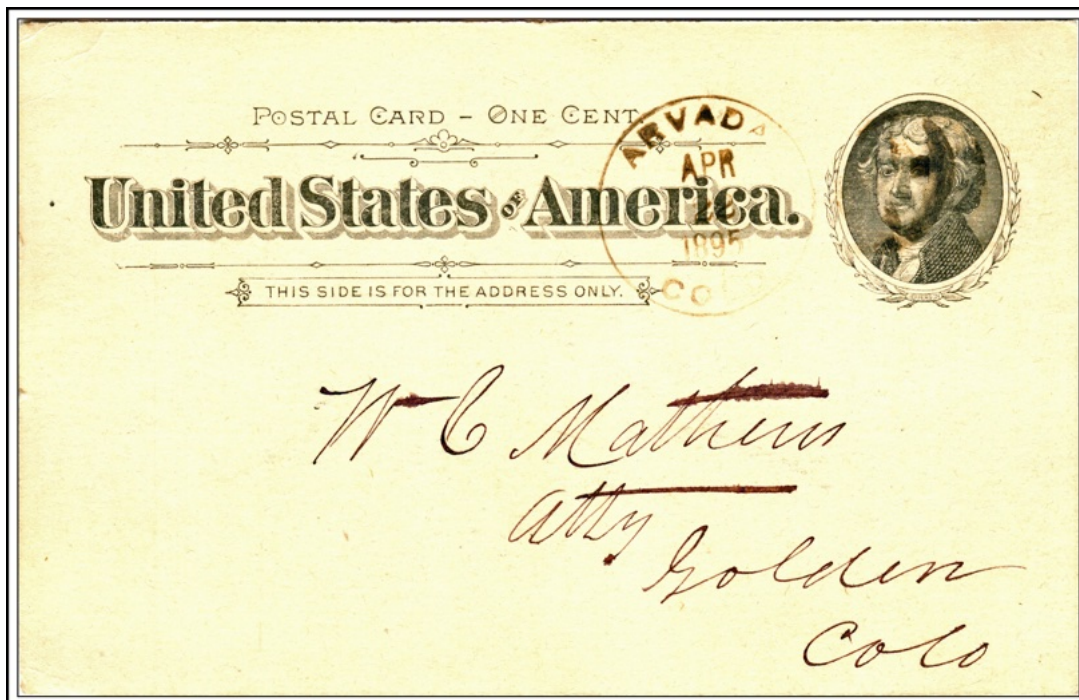 POSTAL CARD - ONE CENT.
United States OF America.
THIS SIDE IS FOR THE ADDRESS ONLY.
ARVADA
APR
1895
CO
W C Mathews
Atty
Golden
Colo